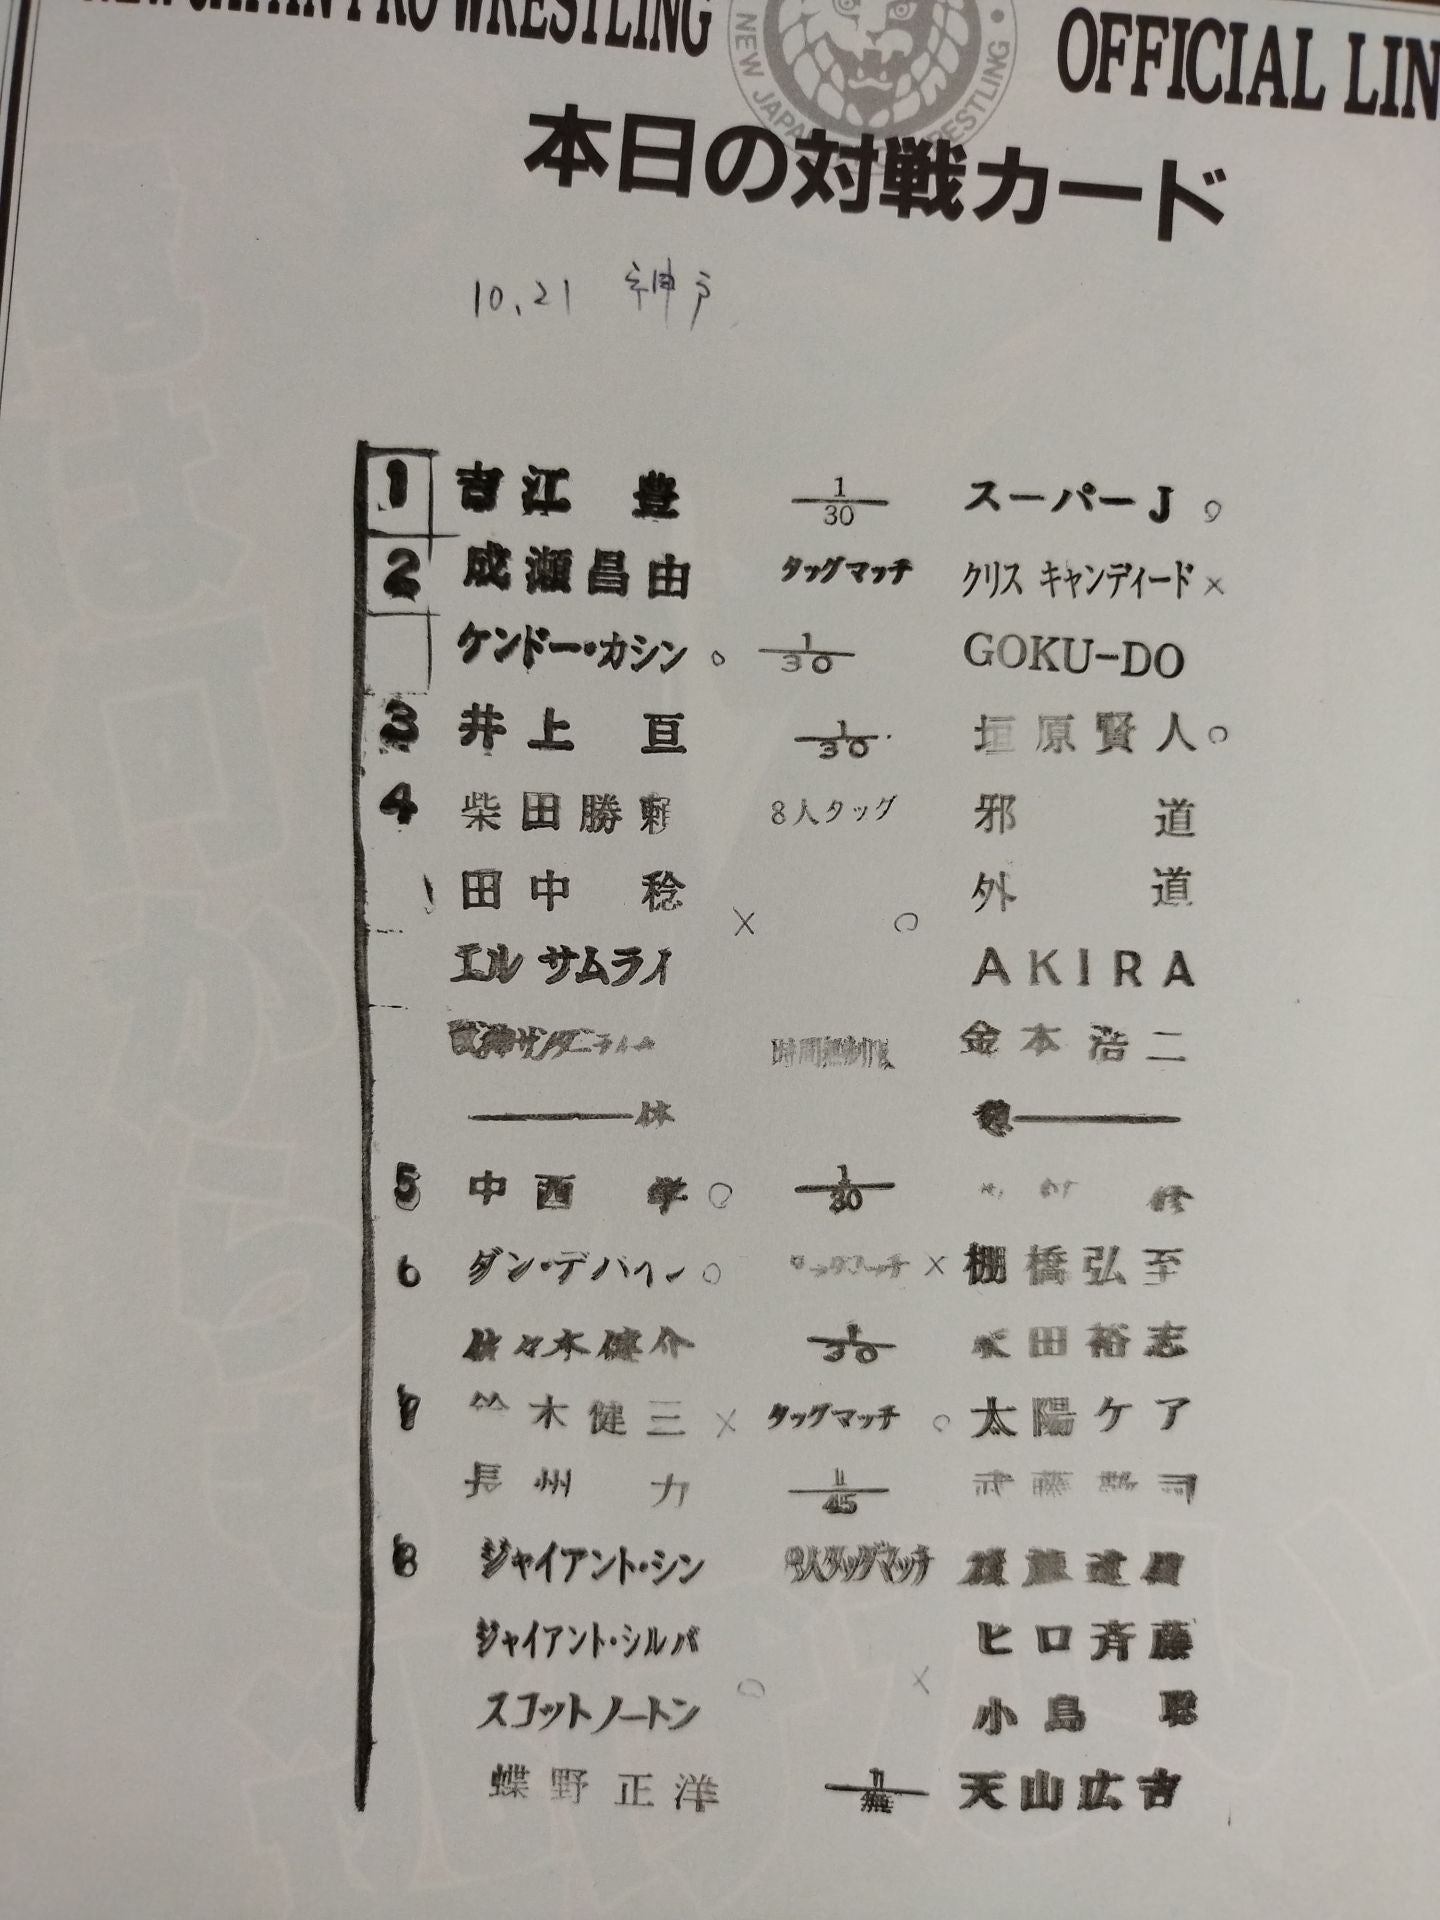 NEW JAPAN PRO WRESTLING
NEW JAPAN PRO WRESTLING
OFFICIAL LIN
本日の対戦カード
10.21 神戸
1 吉江 豊 1/30 スーパーJ ○
2 成瀬昌由 タッグマッチ クリス キャンディード ×
ケンドー・カシン ○ 1/30 GOKU-DO
3 井上 亘 1/30 垣原賢人 ○
4 柴田勝頼 8人タッグ 邪道
田中 稔 外道
× ○
エル サムライ AKIRA
獣神サンダーライガー 時間無制限 金本浩二
休 憩
5 中西 学 ○ 1/30 修
6 ダン・デバイン ○ タッグマッチ × 棚橋弘至
佐々木健介 1/30 永田裕志
7 鈴木健三 × タッグマッチ ○ 太陽ケア
長州 力 1/45 武藤敬司
8 ジャイアント・シン 8人タッグマッチ 後藤達俊
ジャイアント・シルバ ヒロ斉藤
○ ×
スコットノートン 小島 聡
蝶野正洋 1/無 天山広吉